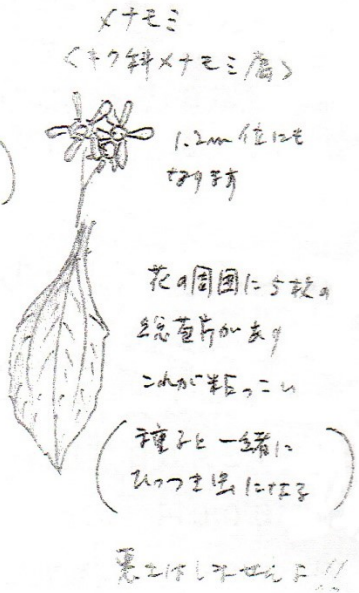 メナモミ
<キク科メナモミ属>
1.2m位にも
なります
花の周囲に5枚の
総苞片があり
これが粘っこい
(種子と一緒に
ひっつき虫になる)
悪さはしませんよ!!